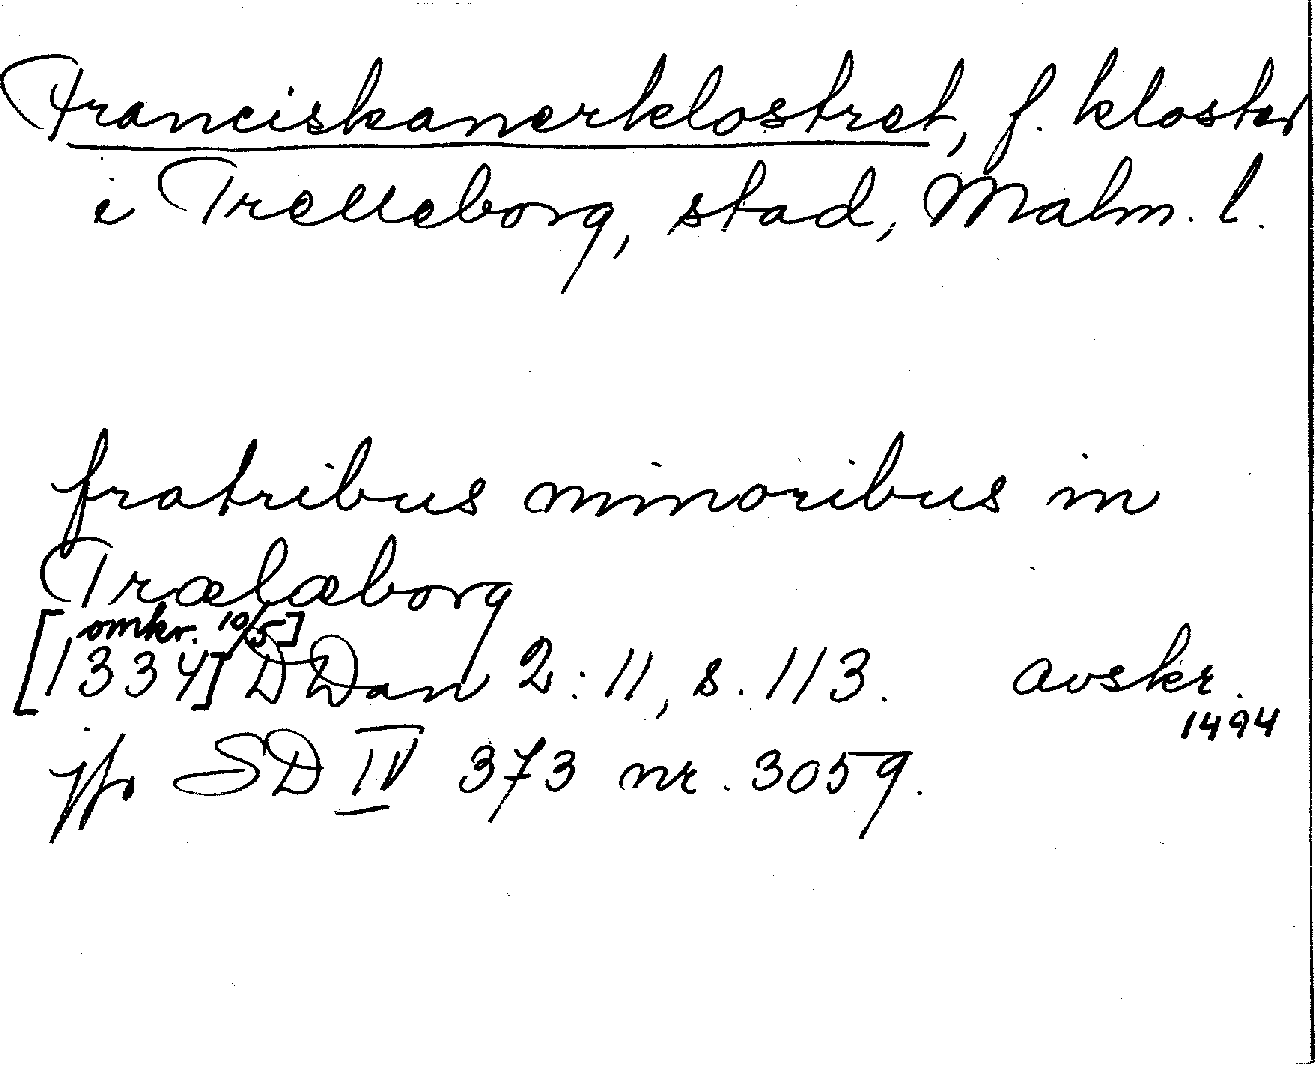 Franciskanerklostret, f. kloster
i Trelleborg, stad, Malm. l.
fratribus minoribus in
Trælæborg
omkr. 10/5]
[1334] DDan 2:11, s. 113. avskr.
1494
jfr SD IV 373 nr. 3059.